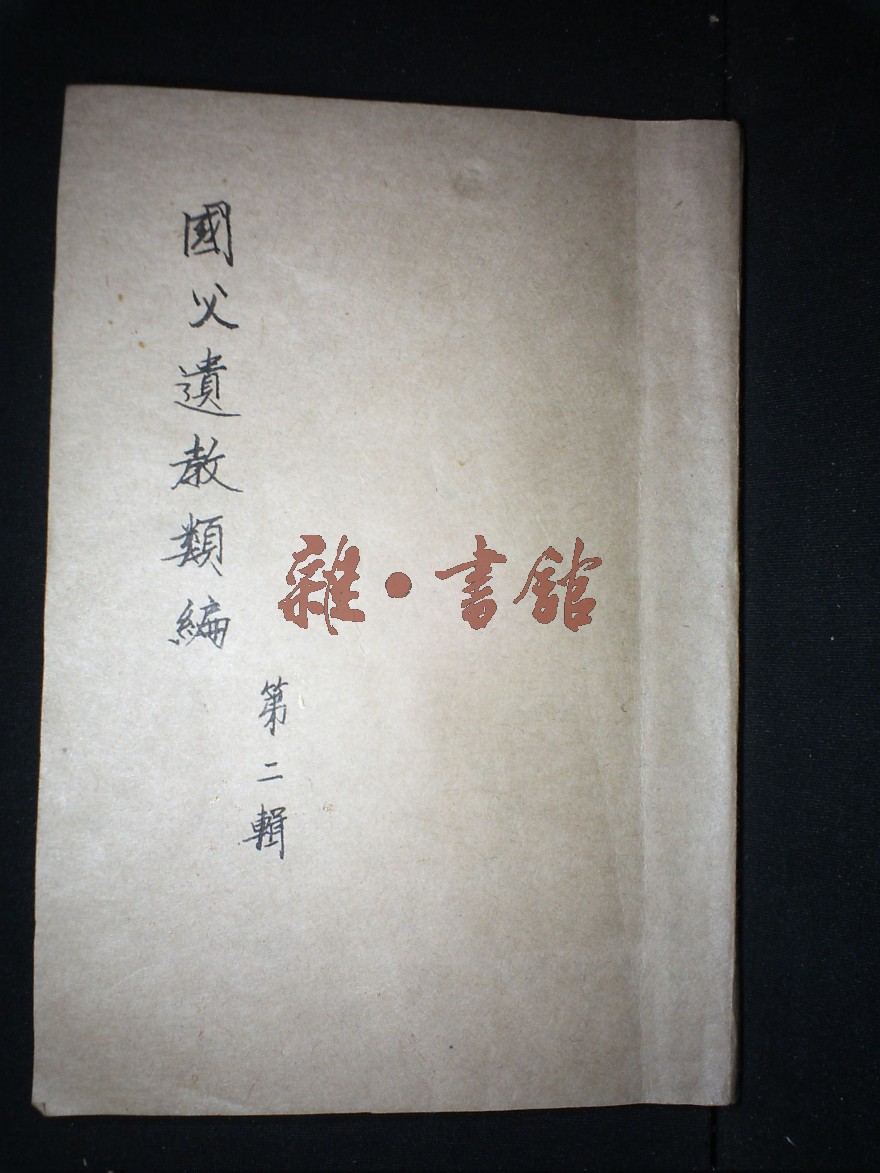 國父遺教類編
第二輯
雜·書館